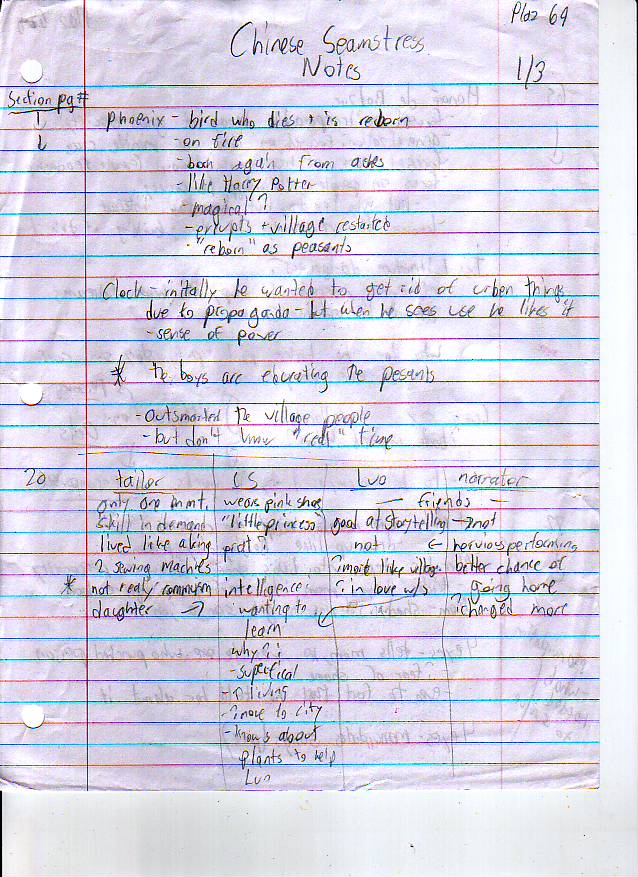 Chinese Seamstress
Notes
1/3
Section pg #
Phoenix - bird who dies + is reborn
- on fire
- born again from ashes
- like Harry Potter
- magical?
- erupts + village restarted
- "reborn" as peasants
Clock - initally he wanted to get rid of urben things
due to propaganda - but when he sees use he likes it
- sense of power
* the boys are educating the pesants
- outsmarted the village people
- but don't know "real" time
20 tailor LS Luo narrator
only one in mnt. wears pink shoes — friends —
skill in demand "little princess" good at storytelling → not
lived like a king pret? not ← nervious performing
2 sewing machies ? more like village. better chance of
* not really commusm intelligence: ? in love w/s going home
daughter → wanting to ? changed more
learn
why??
- superfical
- ↑ living
- ? move to city
- knows about
plants to help
Luo